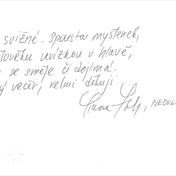 svižné. Spousta myšlenek,
člověku uvíznou v hlavě,
se směje či dojímá.
večer, velmi děkuji